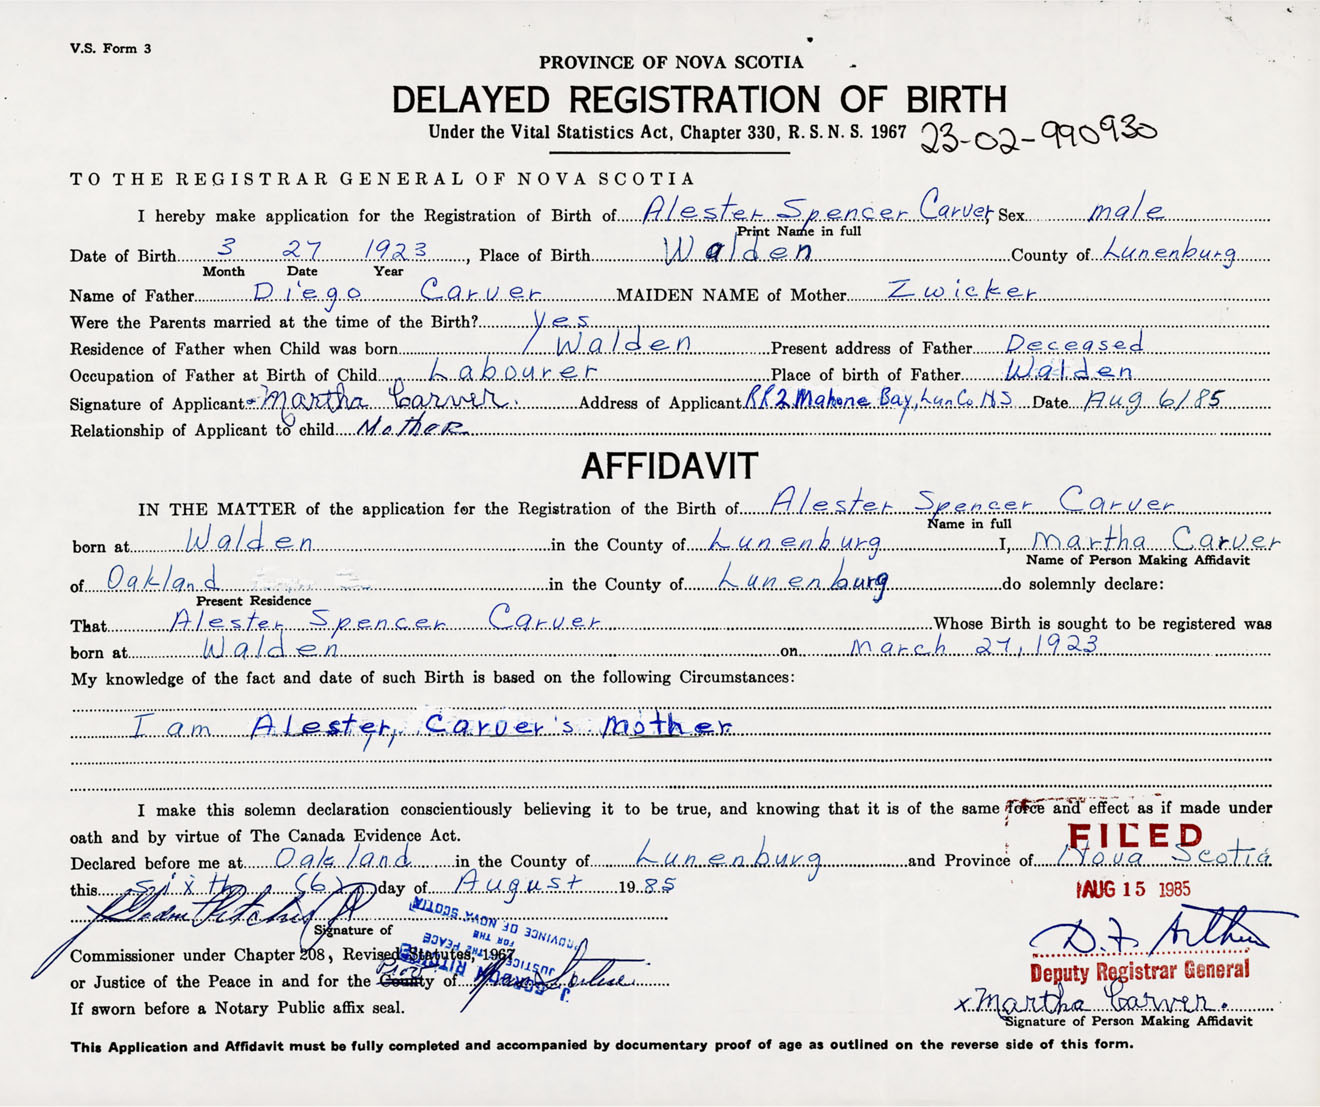 V.S. Form 3
PROVINCE OF NOVA SCOTIA
DELAYED REGISTRATION OF BIRTH
Under the Vital Statistics Act, Chapter 330, R. S. N. S. 1967 23-02-990930
TO THE REGISTRAR GENERAL OF NOVA SCOTIA
I hereby make application for the Registration of Birth of Alester Spencer Carver, Sex male
Print Name in full
Date of Birth 3 27 1923, Place of Birth Walden County of Lunenburg
Month Date Year
Name of Father Diego Carver MAIDEN NAME of Mother Zwicker
Were the Parents married at the time of the Birth? yes
Residence of Father when Child was born Walden Present address of Father Deceased
Occupation of Father at Birth of Child Labourer Place of birth of Father Walden
Signature of Applicant Martha Carver. Address of Applicant RR2 Mahone Bay, Lun Co NS Date Aug 6/85
Relationship of Applicant to child Mother
AFFIDAVIT
IN THE MATTER of the application for the Registration of the Birth of Alester Spencer Carver
Name in full
born at Walden in the County of Lunenburg I, Martha Carver
Name of Person Making Affidavit
of Oakland in the County of Lunenburg do solemnly declare:
Present Residence
That Alester Spencer Carver Whose Birth is sought to be registered was
born at Walden on March 27, 1923
My knowledge of the fact and date of such Birth is based on the following Circumstances:
I am Alester, Carver's Mother
I make this solemn declaration conscientiously believing it to be true, and knowing that it is of the same force and effect as if made under
oath and by virtue of The Canada Evidence Act.
FILED
Declared before me at Oakland in the County of Lunenburg and Province of Nova Scotia
this sixth (6) day of August 1985
AUG 15 1985
Signature of
Commissioner under Chapter 208, Revised Statutes, 1967
or Justice of the Peace in and for the County of Nova Scotia
If sworn before a Notary Public affix seal.
J. GORDON RITCIE
JUSTICE OF THE PEACE
FOR THE
PROVINCE OF NOVA SCOTIA
Deputy Registrar General
x Martha Carver.
Signature of Person Making Affidavit
This Application and Affidavit must be fully completed and accompanied by documentary proof of age as outlined on the reverse side of this form.